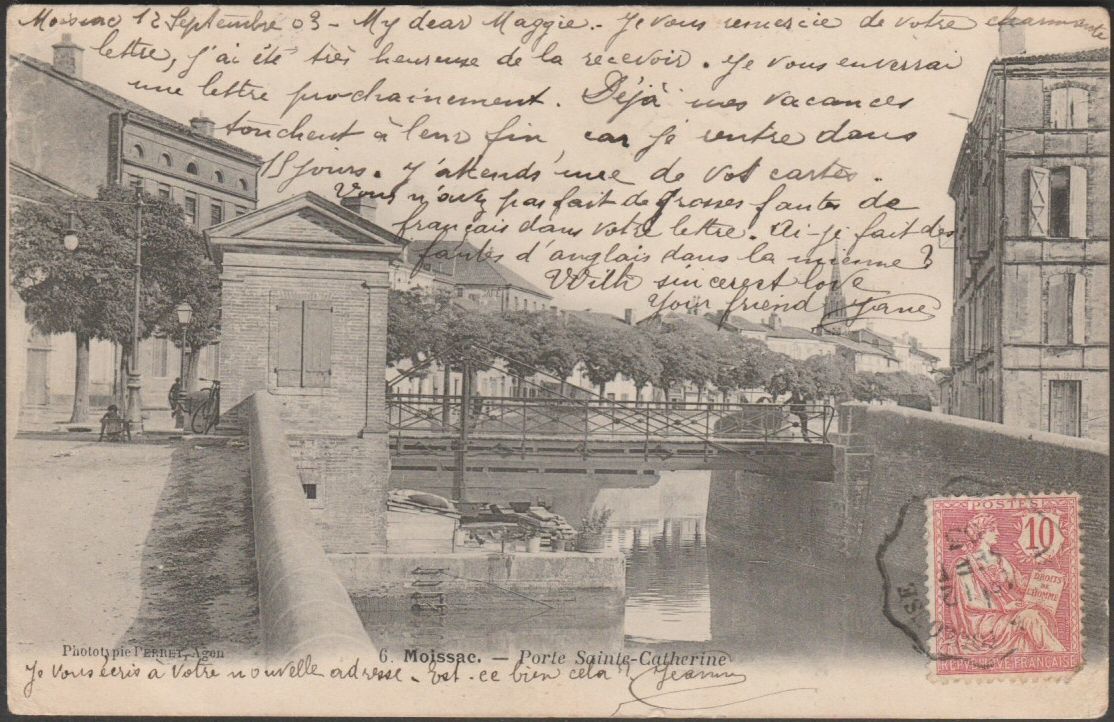 Moissac 12 Septembre 03 - My dear Maggie. Je vous remercie de votre charmante
lettre, j'ai été très heureuse de la recevoir. Je vous enverrai
une lettre prochainement. Déjà mes vacances
touchent à leur fin, car je rentre dans
15 jours. J'attends une de vos cartes.
Vous n'avez pas fait de grosses fautes de
français dans votre lettre. Ai-je fait des
fautes d'anglais dans la mienne?
With sincerest love
Your friend Jane
POSTES
10
DROITS
DE
L'HOMME
REPUBLIQUE FRANÇAISE
Phototypie PERRET, Agen
6. Moissac. — Porte Sainte-Catherine
Je vous écris à votre nouvelle adresse. Est-ce bien cela? Jeanne